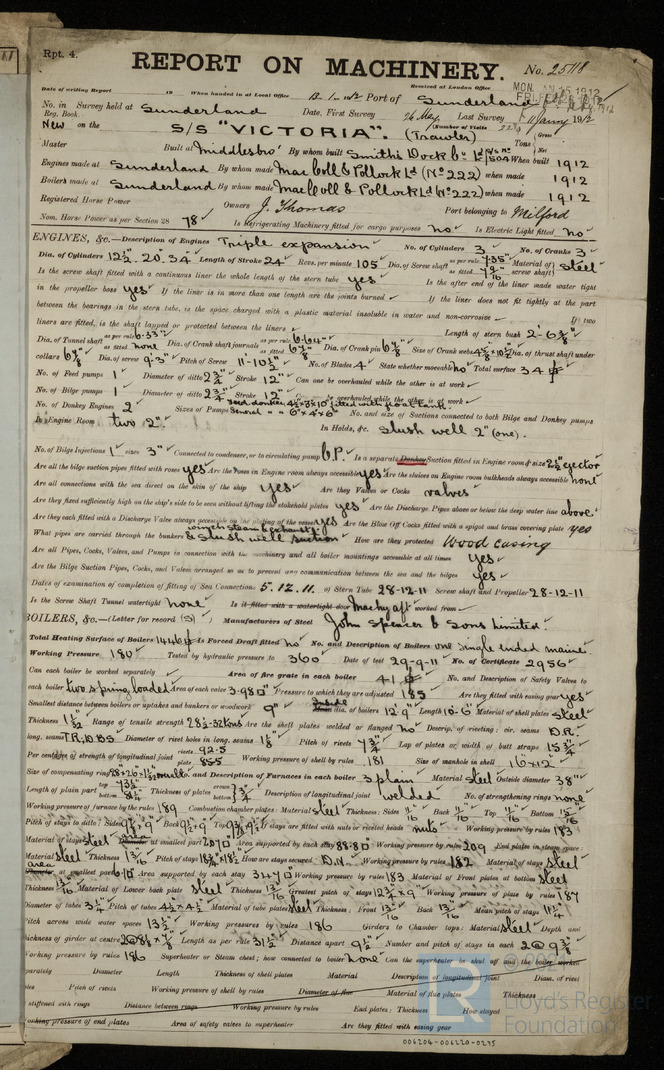 Rpt. 4.
REPORT ON MACHINERY. No. 25118
Date of writing Report 19 When handed in at Local Office Port of Sunderland Received at London Office MON. 1912
No. in Survey held at Sunderland Date, First Survey 26 May, Last Survey 1912
Reg. Book. (Number of Visits
New on the S/S "VICTORIA". (Trawler) Tons Gross Net
Master Built at Middlesbro' By whom built Smith's Dock Co Ld When built 1912
Engines made at Sunderland By whom made MacColl & Pollock Ld (No 222) when made 1912
Boilers made at Sunderland By whom made MacColl & Pollock Ld (No 222) when made 1912
Registered Horse Power Owners J. Thomas Port belonging to Milford
Nom. Horse Power as per Section 28 78 Is Refrigerating Machinery fitted for cargo purposes no Is Electric Light fitted no
ENGINES, &c.—Description of Engines Triple expansion No. of Cylinders 3 No. of Cranks 3
Dia. of Cylinders 12½. 20. 34 Length of Stroke 24 Revs. per minute 105 Dia. of Screw shaft as per rule 7.35 as fitted Material of screw shaft steel
Is the screw shaft fitted with a continuous liner the whole length of the stern tube yes Is the after end of the liner made water tight
in the propeller boss yes If the liner is in more than one length are the joints burned If the liner does not fit tightly at the part
between the bearings in the stern tube, is the space charged with a plastic material insoluble in water and non-corrosive If two
liners are fitted, is the shaft lapped or protected between the liners Length of stern bush 2'-6⅜"
Dia. of Tunnel shaft as per rule 6.33" as fitted none Dia. of Crank shaft journals as per rule 6.64" as fitted 6⅞" Dia. of Crank pin 6⅞ Size of Crank webs Dia. of thrust shaft under
collars 6⅞" Dia. of screw 9-3" Pitch of Screw 11-10½" No. of Blades 4 State whether moveable no Total surface 34
No. of Feed pumps 1 Diameter of ditto 2¾ Stroke 12" Can one be overhauled while the other is at work
No. of Bilge pumps 1 Diameter of ditto 2¾ Stroke 12" Can one be overhauled while the other is at work
No. of Donkey Engines 2 Sizes of Pumps No. and size of Suctions connected to both Bilge and Donkey pumps
In Engine Room two 2" In Holds, &c. slush well 2" (one).
No. of Bilge Injections 1 sizes 3" Connected to condenser, or to circulating pump C.P. Is a separate Donkey Suction fitted in Engine room & size 2½ ejector
Are all the bilge suction pipes fitted with roses yes Are the roses in Engine room always accessible yes Are the sluices on Engine room bulkheads always accessible none
Are all connections with the sea direct on the skin of the ship yes Are they Valves or Cocks valves
Are they fixed sufficiently high on the ship's side to be seen without lifting the stokehold plates yes Are the Discharge Pipes above or below the deep water line above.
Are they each fitted with a Discharge Valve always accessible on the plating of the vessel yes Are the Blow Off Cocks fitted with a spigot and brass covering plate yes
What pipes are carried through the bunkers winch steam & exhaust & slush well suction How are they protected Wood casing
Are all Pipes, Cocks, Valves, and Pumps in connection with the machinery and all boiler mountings accessible at all times yes
Are the Bilge Suction Pipes, Cocks, and Valves arranged so as to prevent any communication between the sea and the bilges yes
Dates of examination of completion of fitting of Sea Connections 5.12.11. of Stern Tube 28-12-11 Screw shaft and Propeller 28-12-11
Is the Screw Shaft Tunnel watertight none Is it fitted with a watertight door Machy aft worked from
BOILERS, &c.—(Letter for record (S)) Manufacturers of Steel John Spencer & Sons Limited.
Total Heating Surface of Boilers 1446 Is Forced Draft fitted no No. and Description of Boilers one single ended marine.
Working Pressure 180 Tested by hydraulic pressure to 360 Date of test 29-9-11 No. of Certificate 2956
Can each boiler be worked separately Area of fire grate in each boiler 41 No. and Description of Safety Valves to
each boiler two spring loaded Area of each valve 3.98 Pressure to which they are adjusted 185 Are they fitted with easing gear yes
Smallest distance between boilers or uptakes and bunkers or woodwork 9" Inside dia. of boilers 12'9" Length 10-6" Material of shell plates steel
Thickness Range of tensile strength 28½-32 tons Are the shell plates welded or flanged no Descrip. of riveting: cir. seams D.R.
long. seams T.R.D.B.S Diameter of rivet holes in long. seams 1⅛ Pitch of rivets 7¾" Lap of plates or width of butt straps 15¾"
Per centages of strength of longitudinal joint rivets 92.5 plate 85.5 Working pressure of shell by rules 181 Size of manhole in shell 16"x12"
Size of compensating ring No. and Description of Furnaces in each boiler 3 plain Material steel Outside diameter 38"
Length of plain part top bottom Thickness of plates crown bottom ¾" Description of longitudinal joint welded No. of strengthening rings none
Working pressure of furnace by the rules 189 Combustion chamber plates: Material steel Thickness: Sides Back Top Bottom
Pitch of stays to ditto: Sides Back Top If stays are fitted with nuts or riveted heads nuts Working pressure by rules 183
Material of stays steel at smallest part Area supported by each stay Working pressure by rules 209 End plates in steam space:
Material steel Thickness Pitch of stays How are stays secured D.N. Working pressure by rules 182 Material of stays steel
area at smallest part Area supported by each stay Working pressure by rules 183 Material of Front plates at bottom steel
Thickness Material of Lower back plate steel Thickness Greatest pitch of stays Working pressure of plate by rules 187
Diameter of tubes 3¼ Pitch of tubes 4½ x 4½ Material of tube plates steel Thickness: Front Back Mean pitch of stays
Pitch across wide water spaces 13½ Working pressures by rules 186 Girders to Chamber tops: Material steel Depth and
thickness of girder at centre Length as per rule 31½" Distance apart 9½ Number and pitch of stays in each
Working pressure by rules 186 Superheater or Steam chest; how connected to boiler none Can the superheater be shut off and the boiler worked
separately Diameter Length Thickness of shell plates Material Description of longitudinal joint Diam. of rivet
holes Pitch of rivets Working pressure of shell by rules Diameter of flue Material of flue plates Thickness
If stiffened with rings Distance between rings Working pressure by rules End plates: Thickness How stayed
Working pressure of end plates Area of safety valves to superheater Are they fitted with easing gear
© 2021
LR
Lloyd's Register
Foundation
006204-006220-0235